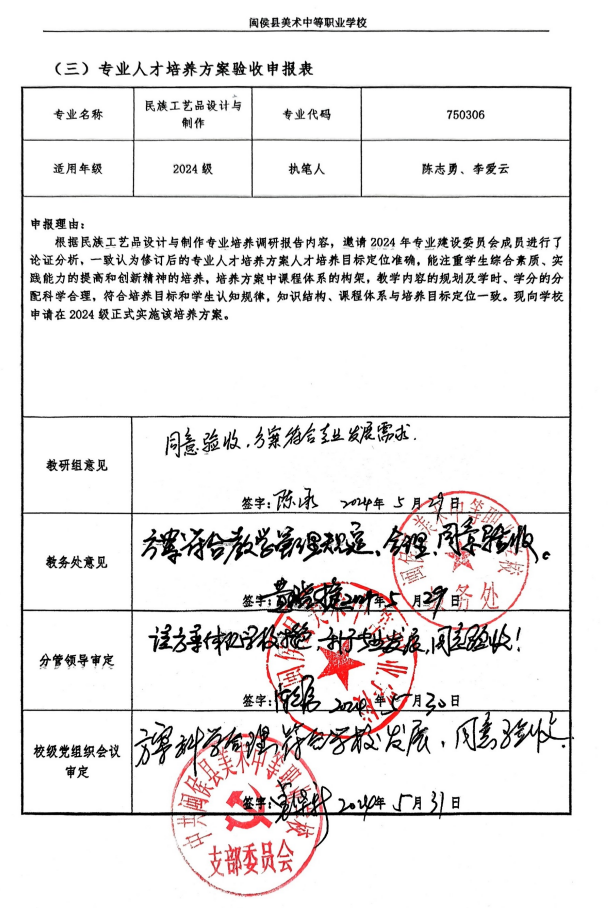 闽侯县美术中等职业学校
（三）专业人才培养方案验收申报表
专业名称
民族工艺品设计与
制作
专业代码
750306
适用年级
2024 级
执笔人
陈志勇、李爱云
申报理由：
根据民族工艺品设计与制作专业培养调研报告内容，邀请 2024 年专业建设委员会成员进行了
论证分析，一致认为修订后的专业人才培养方案人才培养目标定位准确，能注重学生综合素质、实
践能力的提高和创新精神的培养，培养方案中课程体系的构架，教学内容的规划及学时、学分的分
配科学合理，符合培养目标和学生认知规律，知识结构、课程体系与培养目标定位一致。现向学校
申请在 2024 级正式实施该培养方案。
教研组意见
同意验收，方案符合专业发展需求.
签字: 陈 2024 年 5 月 29 日
教务处意见
方案符合教学管理规定、合理，同意验收。
签字: 2024 年 5 月 29 日
闽侯县美术中等职业学校
教务处
分管领导审定
该方案体现学校，利于专业发展，同意验收！
签字: 2024 年 5 月 30 日
闽侯县美术中等职业学校
校级党组织会议
审定
方案科学合理，符合学校发展，同意验收.
签字: 2024 年 5 月 31 日
中共闽侯县美术中等职业学校
支部委员会